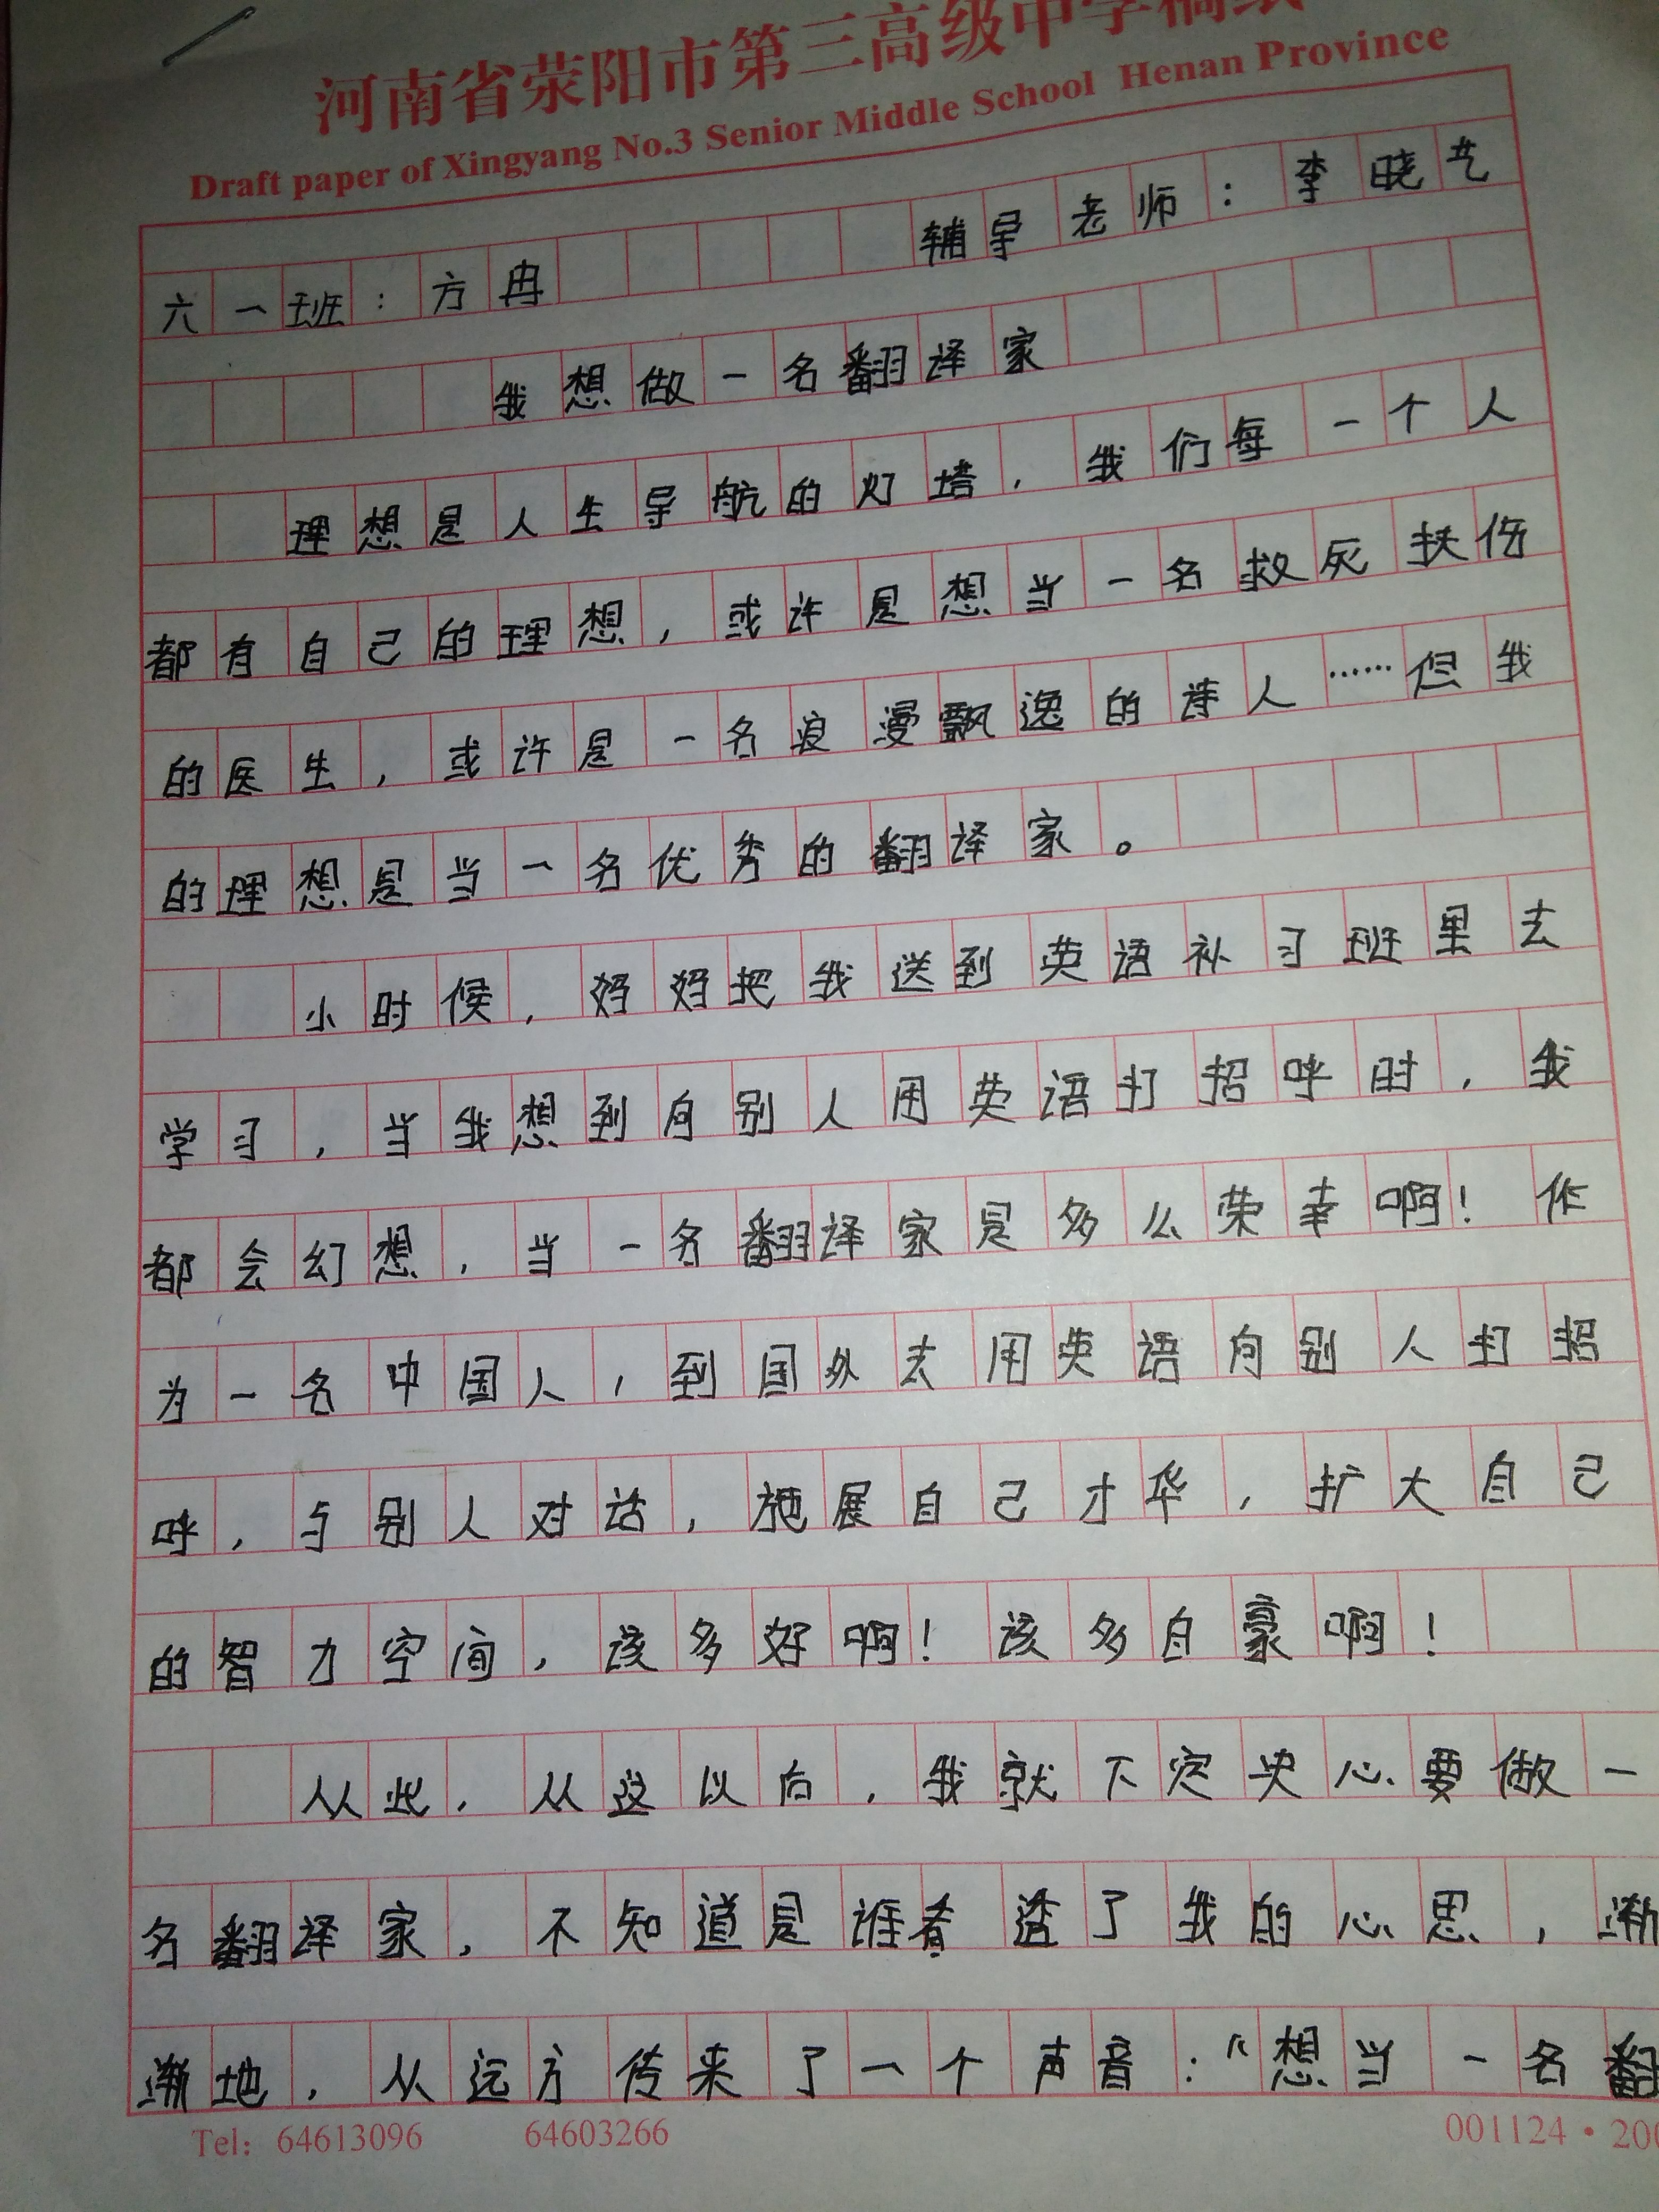 河南省荥阳市第三高级中学稿纸
Draft paper of Xingyang No.3 Senior Middle School Henan Province
六一班：方冉 辅导老师：李晓艺
我想做一名翻译家
理想是人生导航的灯塔，我们每一个人
都有自己的理想，或许是想当一名救死扶伤
的医生，或许是一名浪漫飘逸的诗人……但我
的理想是当一名优秀的翻译家。
小时候，妈妈把我送到英语补习班里去
学习，当我想到向别人用英语打招呼时，我
都会幻想，当一名翻译家是多么荣幸啊！作
为一名中国人，到国外去用英语向别人打招
呼，与别人对话，施展自己才华，扩大自己
的智力空间，该多好啊！该多自豪啊！
从此，从这以后，我就下定决心要做一
名翻译家，不知道是谁看透了我的心思，渐
渐地，从远方传来了一个声音：“想当一名翻
Tel：64613096 64603266
001124·200